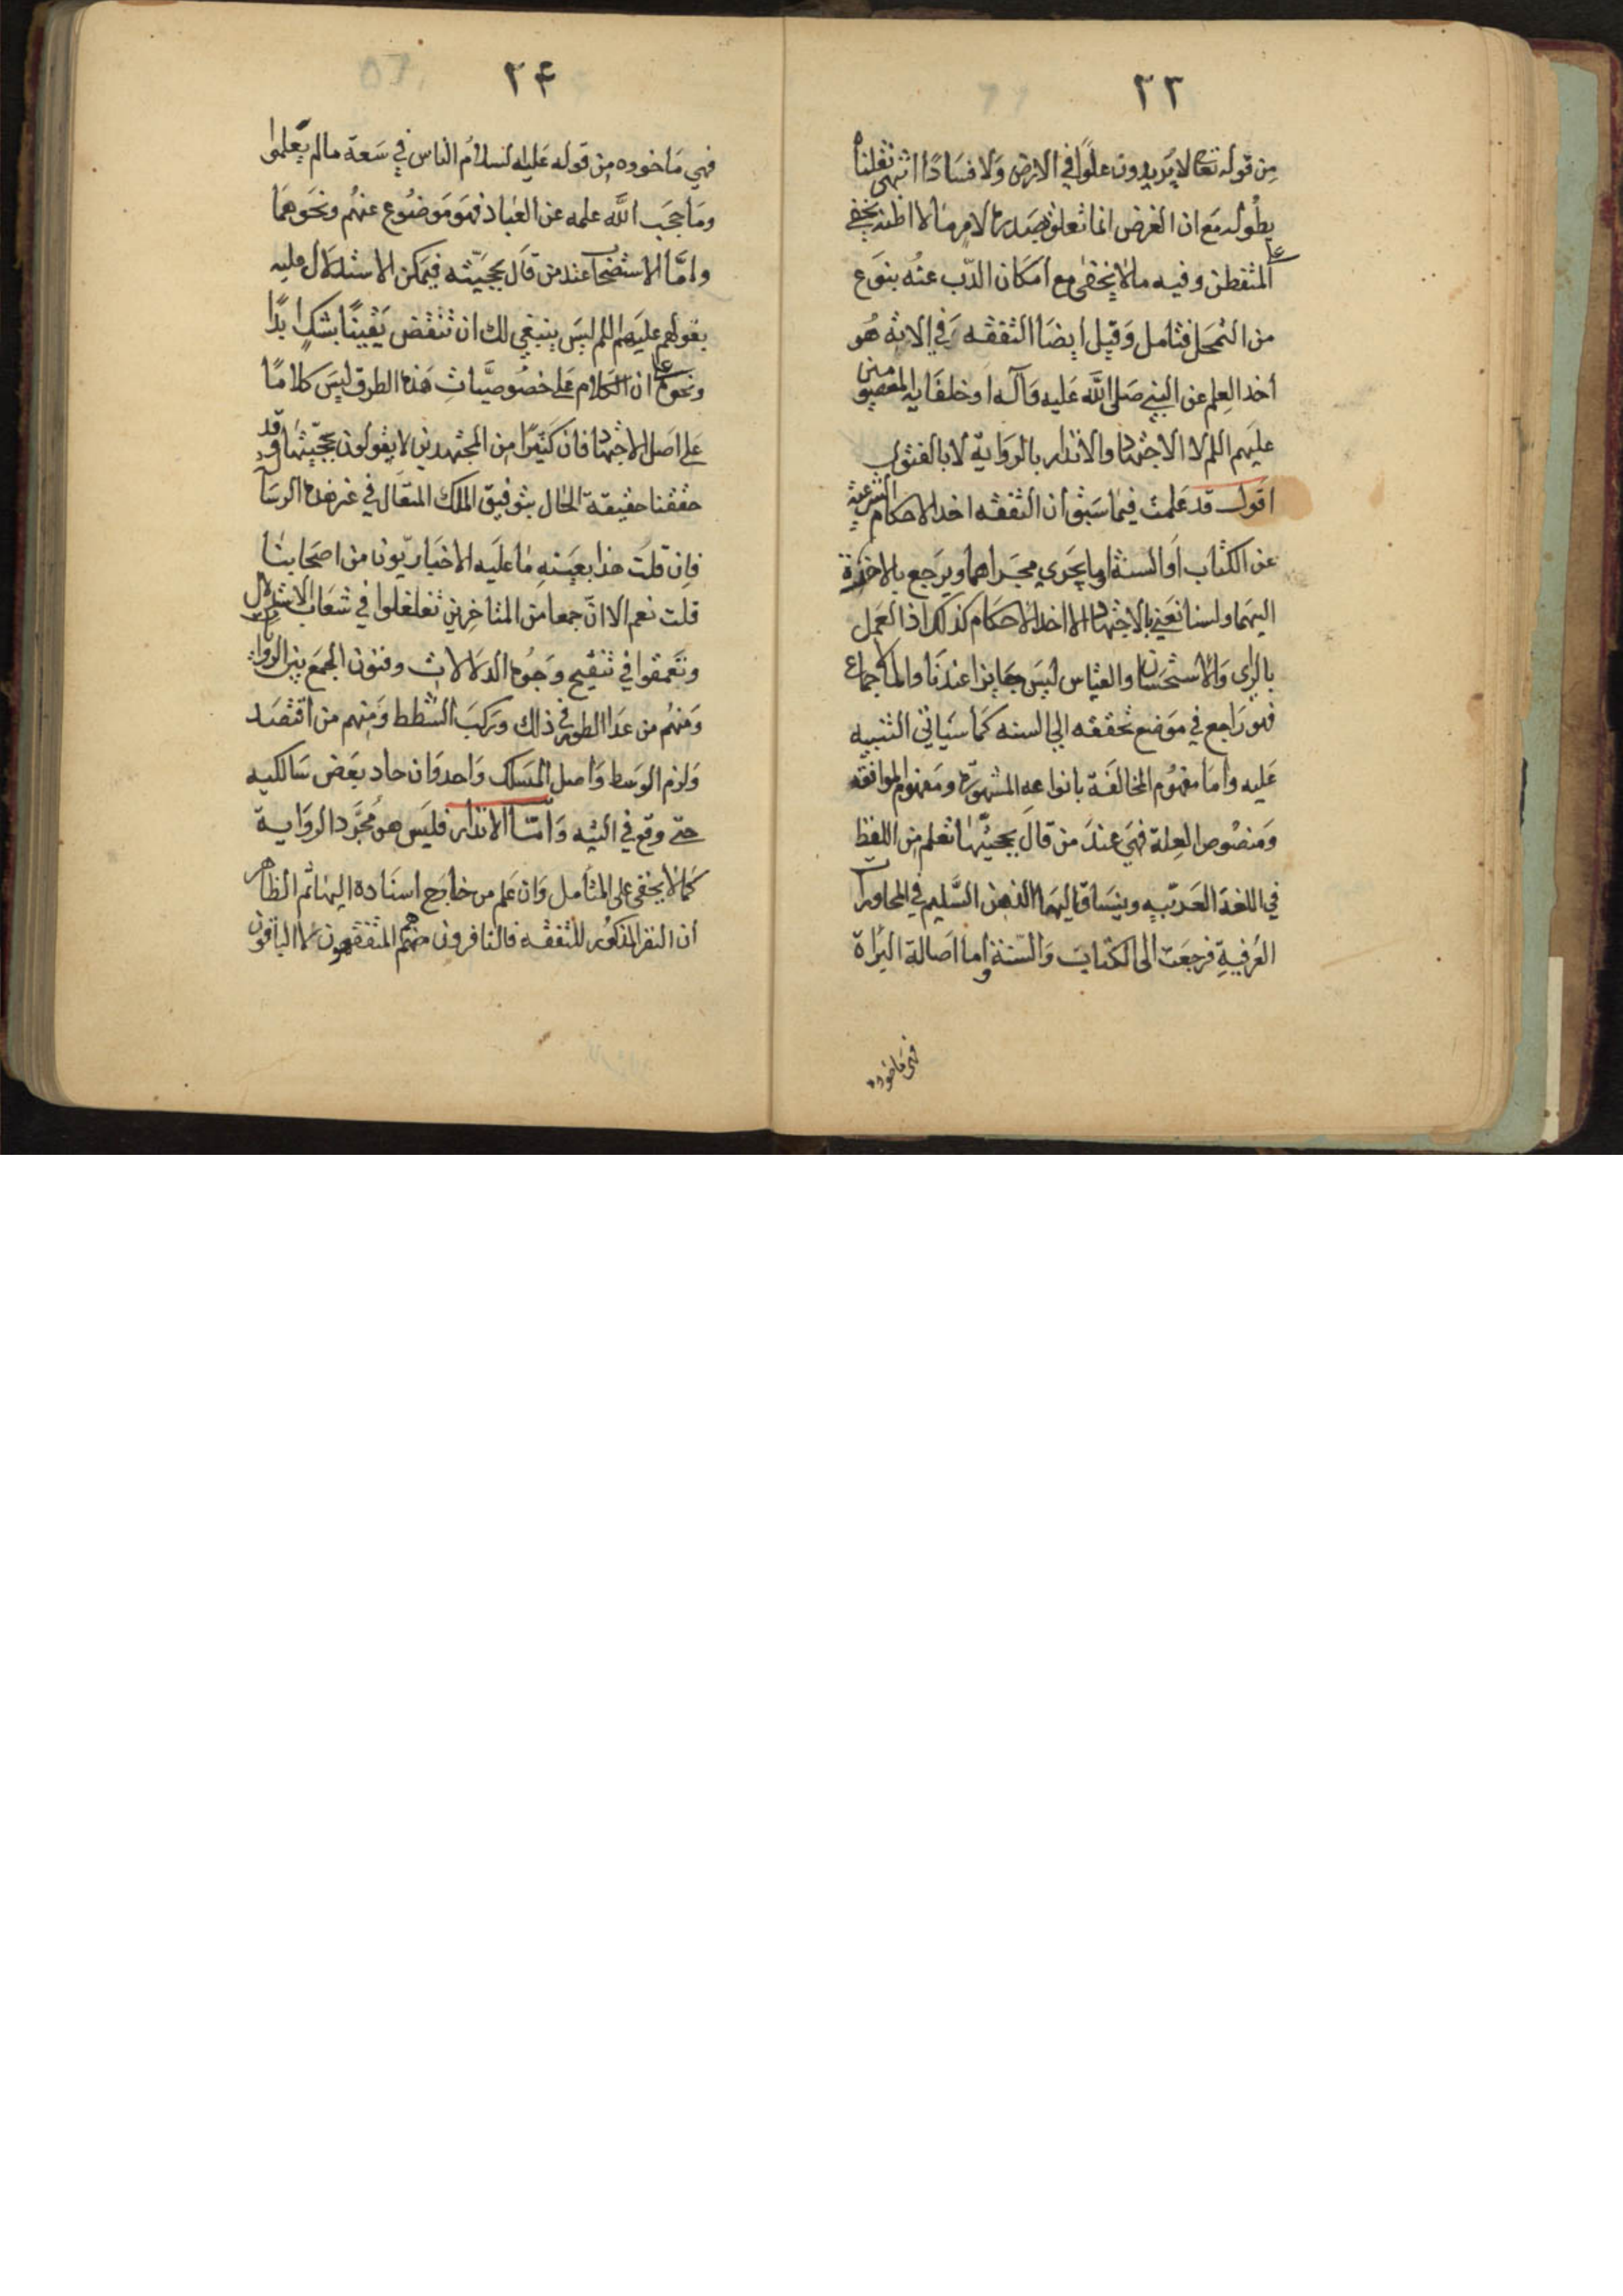 ٢٣
من قوله تعالى لا يريدون علوا في الارض ولا فسادا انتهى نقلناه
بطوله مع ان الغرض انما تعلق بصدره لامر ما لا اظنه يخفى
على المتفطن وفيه ما لا يخفى مع امكان الذب عنه بنوع
من التمحل فتامل وقيل ايضا التفقه في الاية هو
اخذ العلم عن النبي صلى الله عليه وآله او خلفايه المعصومين
عليهم السلم لا الاجتهاد والانذار بالرواية لا بالفتوى
اقول قد علمت فيما سبق ان التفقه اخذ الاحكام الشرعية
عن الكتاب او السنة او ما يجري مجراهما ويرجع بالاخرة
اليهما ولسنا نعني بالاجتهاد الا اخذ الاحكام كذلك اذ العمل
بالراى والاستحسان والقياس ليس جايزا عندنا واما الاجماع
فهو راجع في موضع تحققه الى السنه كما سياتي التنبيه
عليه واما مفهوم المخالفة بانواعه المشهورة ومفهوم الموافقه
ومنصوص العلة فهي عند من قال بحجيتها تعلم من اللفظ
في اللغة العربيه وينساق اليها الذهن السليم في المحاورات
العرفية فرجعت الى الكتاب والسنة واما اصالة البراة
فهي ماخوده
٢۴
فهي ماخوده من قوله عليه السلام الناس في سعة مالم يعلموا
وما حجب الله علمه عن العباد فهو موضوع عنهم ونحوهما
واما الاستصحاب عند من قال بحجيته فيمكن الاستدلال عليه
بقولهم عليهم السلم ليس ينبغي لك ان تنقض يقينا بشك ابدا
ونحوه على ان الكلام على خصوصيات هذه الطرق ليس كلاما
على اصل الاجتهاد فان كثيرا من المجتهدين لا يقولون بحجيتها وقد
حققنا حقيقة الحال بتوفيق الملك المتعال في غير هذه الرسالة
فان قلت هذا بعينه ما عليه الاخباريون من اصحابنا
قلت نعم الا ان جمعا من المتاخرين تغلغلوا في شعاب الاستدلال
وتعمقوا في تنقيح وجوه الدلالات وفنون الجمع بين الروايات
ومنهم من عدا الطور في ذلك وركب الشطط ومنهم من اقتصد
ولزم الوسط واصل المسلك واحد وان حاد بعض سالكيه
حتى وقع في التيه واما الانذار فليس هو مجرد الرواية
كما لا يخفى على المتامل وان علم من خارج اسنادة اليها ثم الظاهر
ان النفر المذكور للتفقه فالنافرون هم المتفقهون لا الباقون